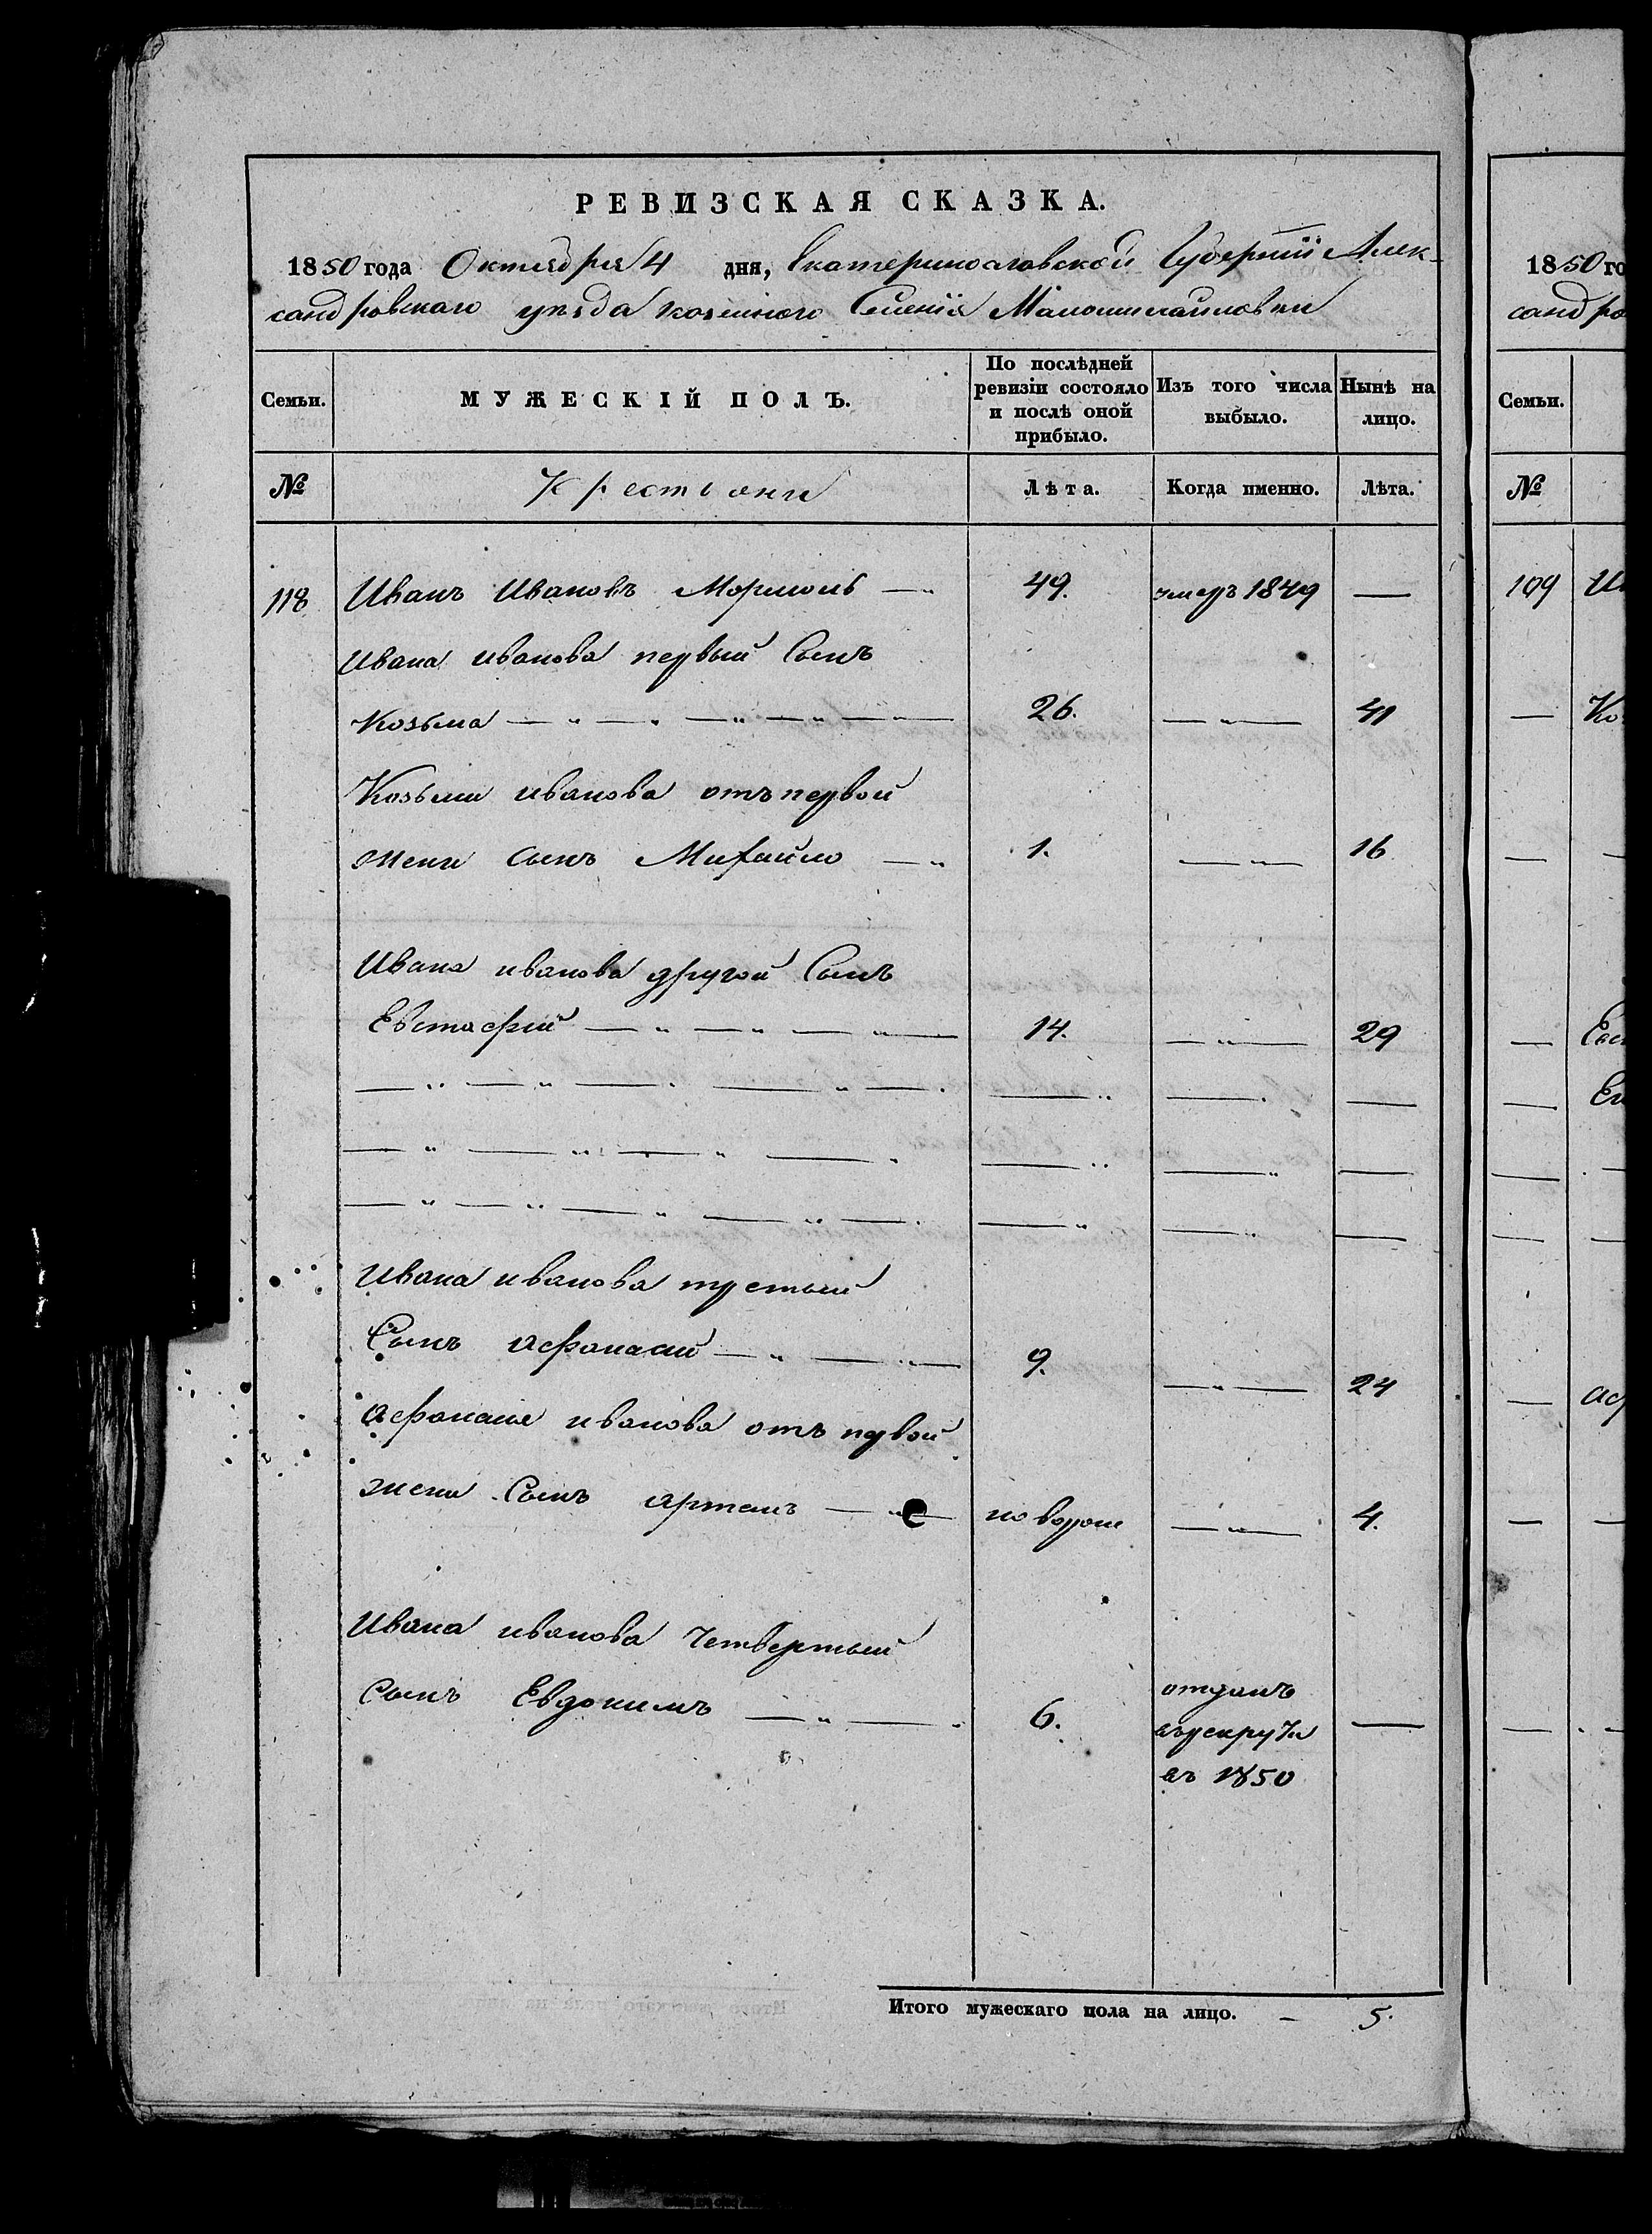 РЕВИЗСКАЯ СКАЗКА.
1850 года Октября 4 дня, Екатеринославской Губернии Алек-
сандровскаго уезда казенного Селенія Маломихайловки
Семьи. МУЖЕСКІЙ ПОЛЪ. По послѣдней ревизіи состояло и послѣ оной прибыло. Изъ того числа выбыло. Нынѣ на лицо.
№ Крестьяни Лѣта. Когда именно. Лѣта.
118 Иванъ Ивановъ — 49. умеръ 1849 —
Ивана иванова первый Сынъ
Козьма — 26. — 41
Козьми иванова отъ первой
жени сынъ Михайло — 1. — 16
Ивана иванова другой Сынъ
Евстафий — 14. — 29
Ивана иванова третьий
Сынъ афанасий — 9. — 24
афанасия иванова отъ первой
жени Сынъ артемъ — новорож — 4.
Ивана иванова Четвертый
сынъ Евдокимъ — 6. отданъ
въ рекруты
въ 1850 —
Итого мужескаго пола на лицо. — 5.
1850 го
сандро
Семьи.
№
109 Ив
— Ко
— Евс
— аф